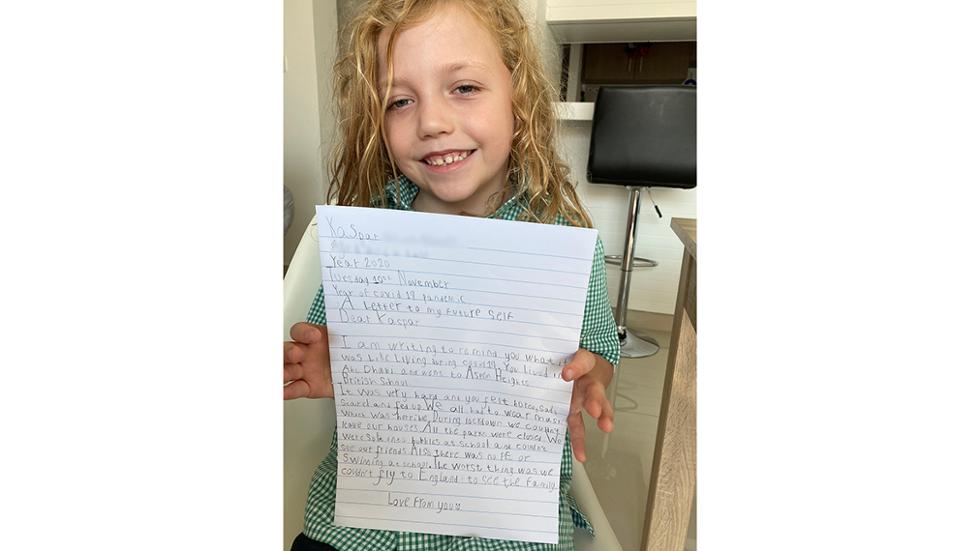 Kaspar
Year 2020
Tuesday 10th November
Year of covid 19 pandemic
A Letter to my future self
Dear Kaspar
I am writing to remind you what it
was Like Living buring covid19. You Lived in
Abu Dhabi and went to Aston Heights
British School.
It was very hard and you felt sad,
scared and fed up. We all had to wear
which was horrible. During Lockdown we
leave our houses. All the parks were closed. We
were into bubbles at school and couldnt
see our friends. Also there was no PE or
Swimming at school. The worst thing was we
couldn't fly to England to see the family
Love From you